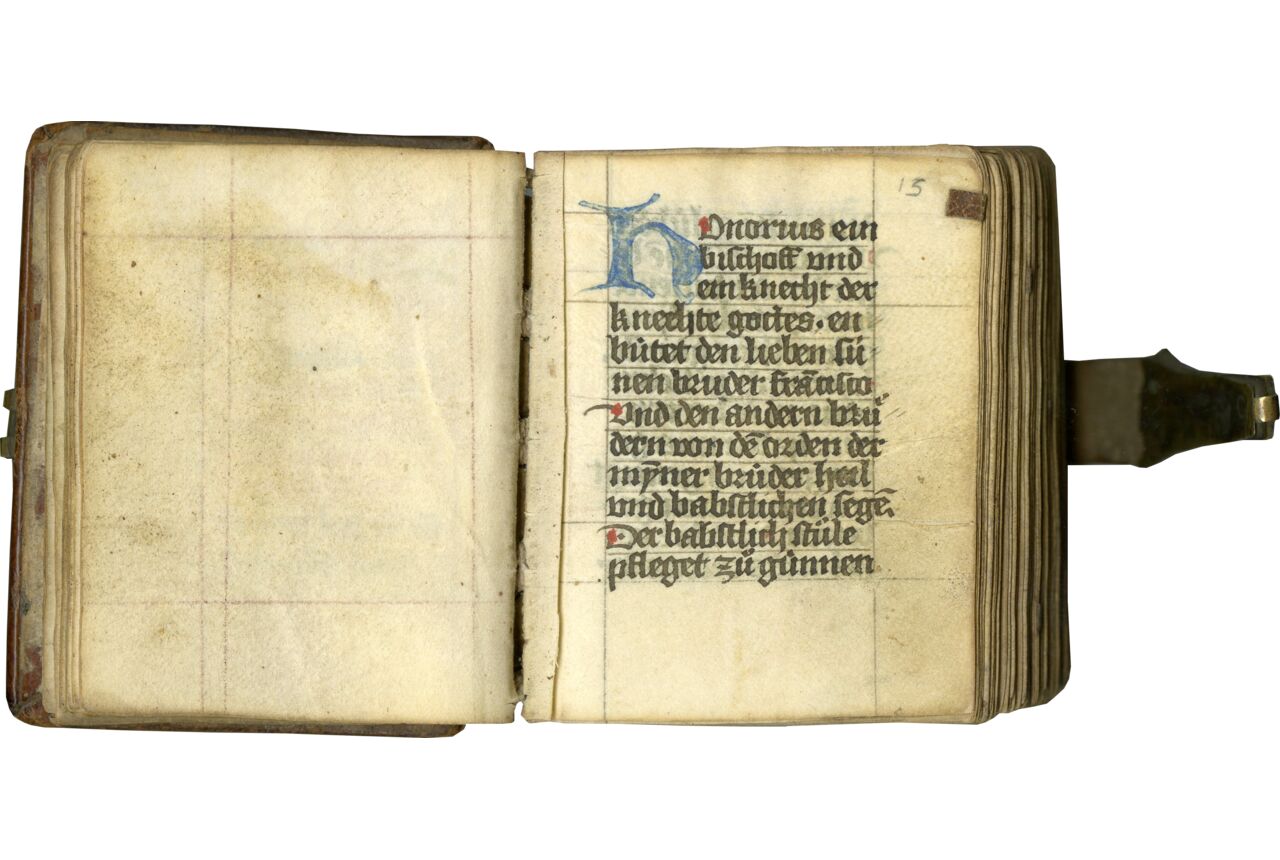 15
HOnorius ein
bischoff vnd
ein knecht der
knechte gottes. en
bütet den lieben sü
nen bruder franciſco
Vnd den andern brů
dern von dē orden der
mÿner brůder heil
vnd babſtlichen ſegē.
Der babſtlich ſtůle
pfleget zů gůnnen